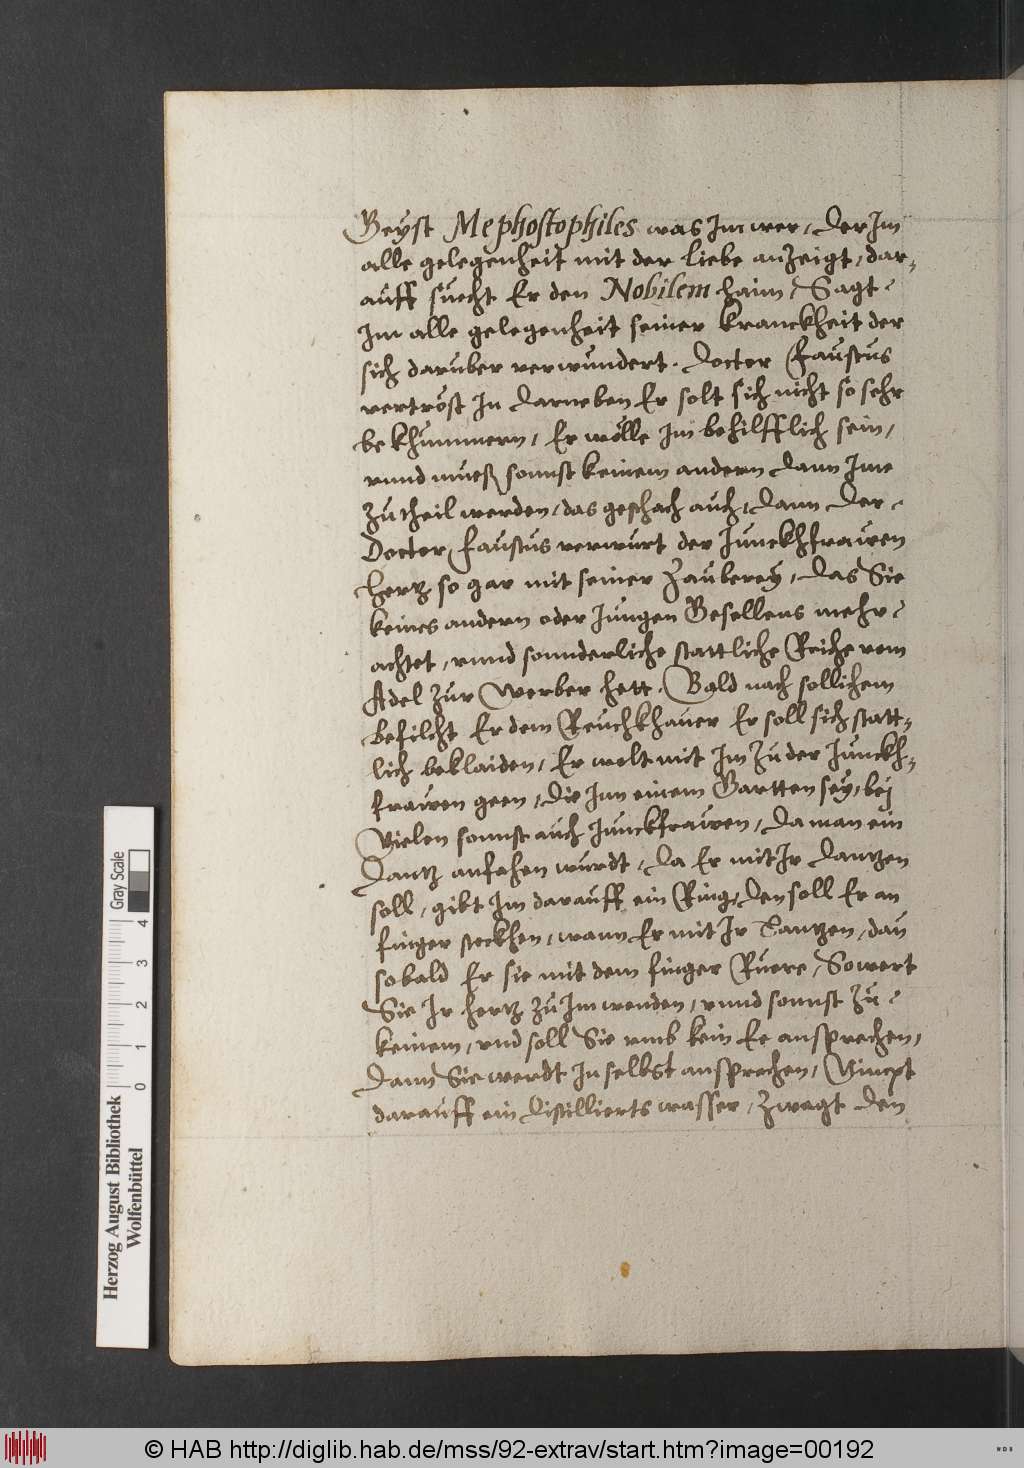 Geyst Mephostophiles was Im wer, der Im
alle gelegenheit mit der liebe anzeigt, dar-
auff suecht Er den Nobilem haim, Sagt
Im alle gelegenheit seiner kranckheit der
sich daruber verwundert. Doctor Faustus
vertröst In darneben Er solt sich nicht so sehr
bekhummern, Er wölle Im behilfflich sein,
vnnd mueß sonnst keinem andern dann Ime
zu theil werden, das geschach auch, dann der
Doctor Faustus verwurt der Junckhfrawen
hertz so gar mit seiner Zauberey, das Sie
keines andern oder Jungen Gesellens mehr
achtet, vnnd sonnderliche stattliche Reiche vom
Adel zur Werber hett. Bald nach sollichem
befilcht Er dem Reuchkhauer Er soll sich statt-
lich beklaiden, Er wolt mit Im zu der Junckh-
frawen geen, die Inn einem Gartten sey, bej
Vielen sonnst auch Junckfrawen, da man ein
Dantz anfahen wurdt, da Er mit Ir dantzen
soll, gibt Im darauff ein Ring, den soll Er an
finger steckhen, wann Er mit Ir Tantzen, dan
so bald Er sie mit dem finger Ruere, So wert
Sie Ir hertz zu Im wenden, vnnd sonnst zu
keinem, vnd soll Sie vmb kein Ee ansprechen,
dann Sie werdt In selbst ansprechen, Nimept
darauff ein distillierts wasser, zwagt den
Herzog August Bibliothek
Wolfenbüttel
Gray Scale
0 1 2 3 4
© HAB http://diglib.hab.de/mss/92-extrav/start.htm?image=00192